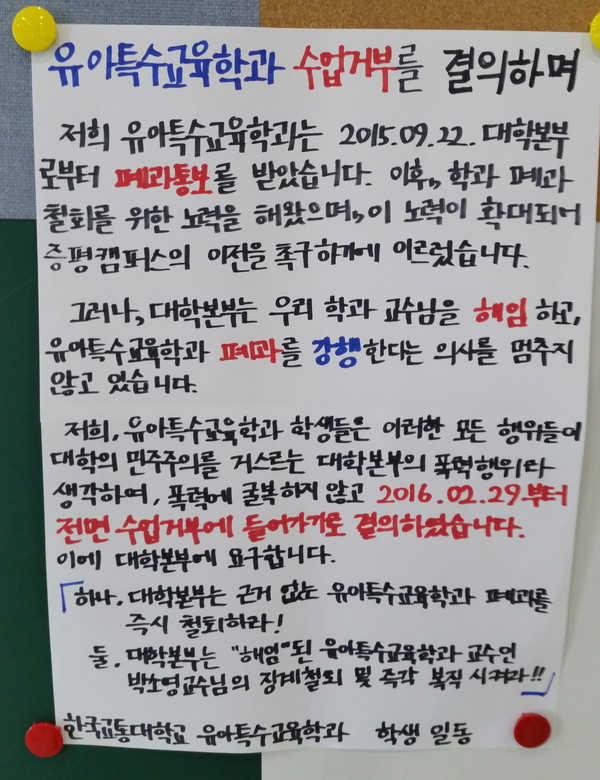 유아특수교육학과 수업거부를 결의하며
저희 유아특수교육학과는 2015.09.22. 대학본부
로부터 폐과통보를 받았습니다. 이후, 학과 폐과
철회를 위한 노력을 해왔으며, 이 노력이 확대되어
증평캠퍼스의 이전을 촉구하기에 이르렀습니다.
그러나, 대학본부는 우리 학과 교수님을 해임 하고,
유아특수교육학과 폐과를 강행한다는 의사를 멈추지
않고 있습니다.
저희, 유아특수교육학과 학생들은 이러한 모든 행위들이
대학의 민주주의를 거스르는 대학본부의 폭력행위라
생각하여, 폭력에 굴복하지 않고 2016.02.29.부터
전면 수업거부에 들어가기로 결의하였습니다.
이에 대학본부에 요구합니다.
「하나. 대학본부는 근거 없는 유아특수교육학과 폐과를
즉시 철회하라!
둘. 대학본부는 "해임"된 유아특수교육학과 교수인
박소영교수님의 징계철회 및 즉각 복직 시켜라!!」
한국교통대학교 유아특수교육학과 학생 일동